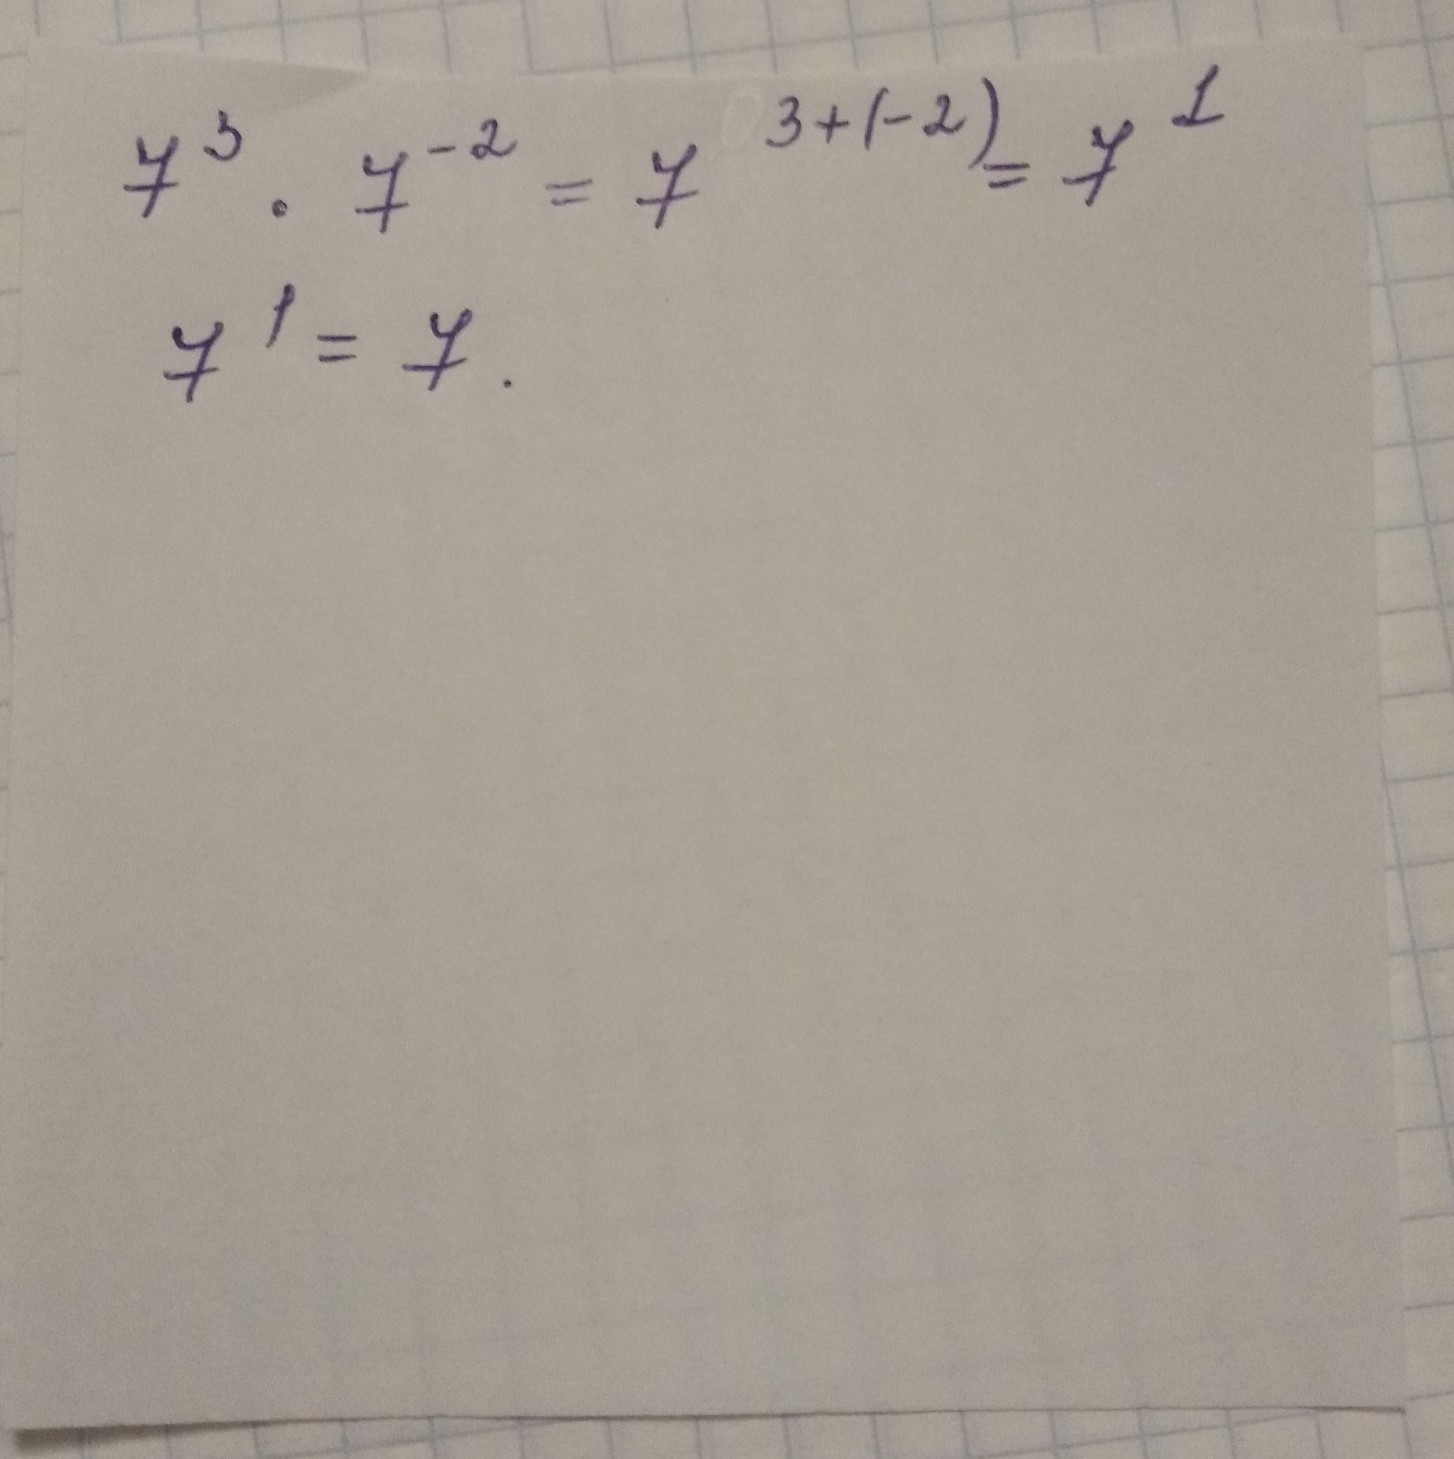 7³ · 7⁻² = 7³⁺⁽⁻²⁾ = 7¹
7¹ = 7.